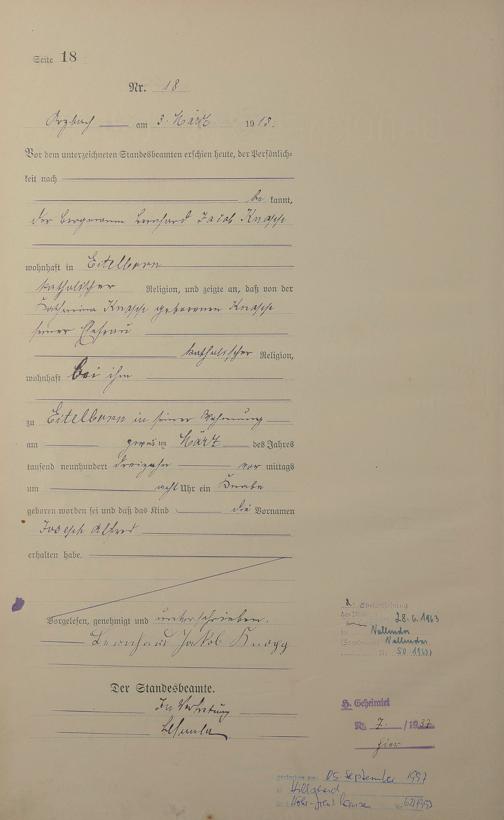 Seite 18
Nr. 18
Arzbach am 3. März 1913.
Vor dem unterzeichneten Standesbeamten erschien heute, der Persönlich-
keit nach
be kannt,
der Bergmann Leonhard Jacob Knopp
wohnhaft in Eitelborn
katholischer Religion, und zeigte an, daß von der
Katharina Knopp geborenen Knopp
seiner Ehefrau
katholischer Religion,
wohnhaft bei ihm
zu Eitelborn in seiner Wohnung
am zweiten März des Jahres
tausend neunhundert dreizehn vor mittags
um acht Uhr ein Knabe
geboren worden sei und daß das Kind die Vornamen
Joseph Alfred
erhalten habe.
Vorgelesen, genehmigt und unterschrieben.
Leonhard Jakob Knopp
Der Standesbeamte.
In Vertretung
28.6.1963
Vallendar
Vallendar
H. Geheiratet
Nr. 7 / 1937
hier
05 September 1997
Hillscheid